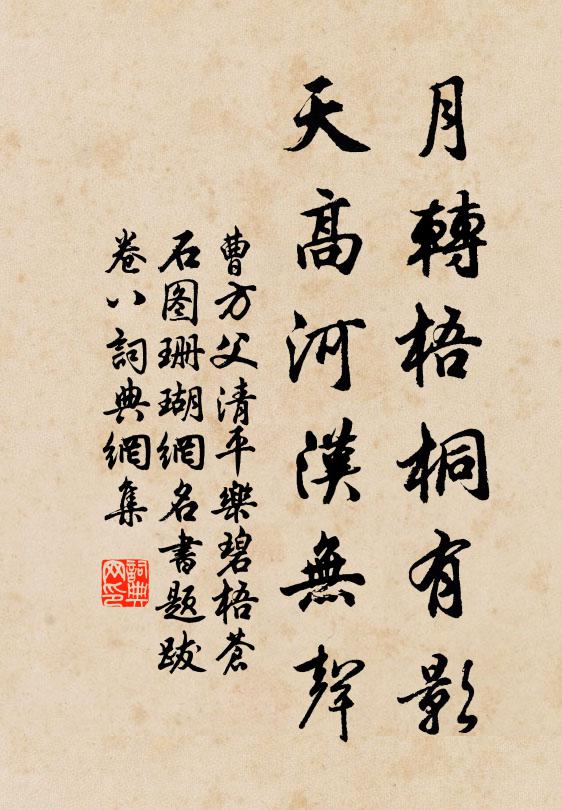 月轉梧桐有影
天高河漢無聲
曹方父清平樂碧梧蒼
石图珊瑚網名書題跋
卷八詞典網集
詞典网印